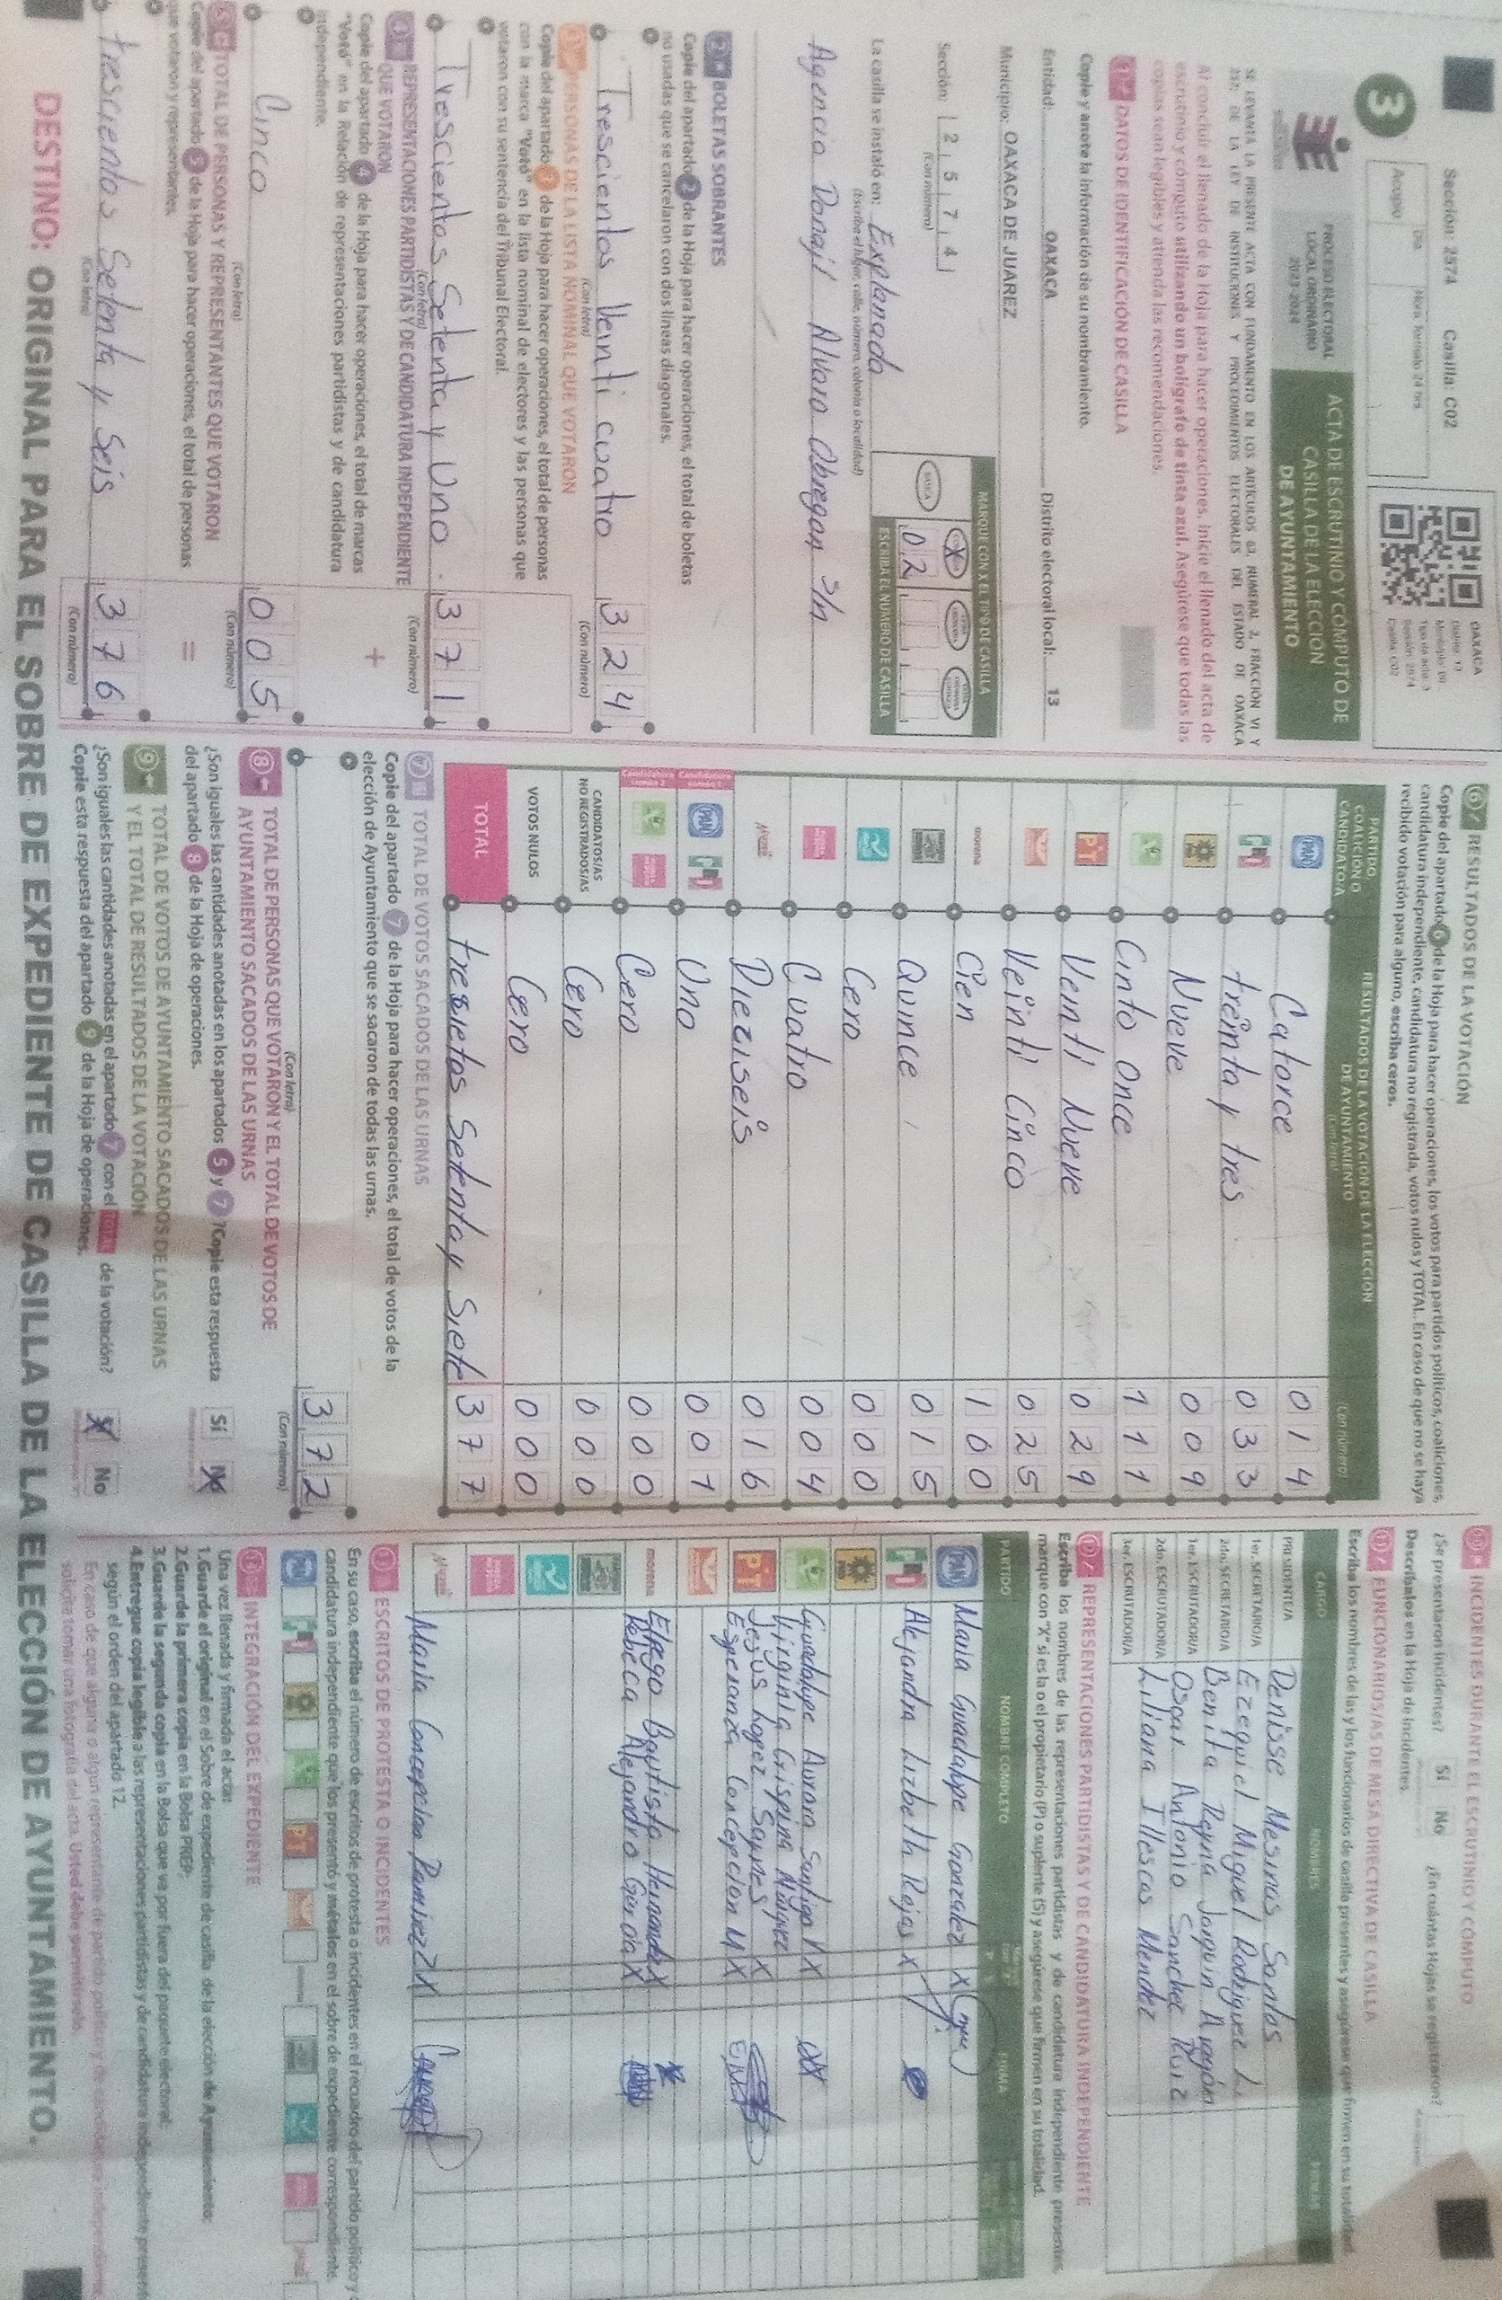 Sección: 2574 Casilla: C02
Acopio
Día
Hora: formato 24 hrs
OAXACA
Distrito: 13
Tipo de acta: 3
Sección: 2574
Casilla: C02
3
PROCESO ELECTORAL
LOCAL ORDINARIO
2023-2024
ACTA DE ESCRUTINIO Y CÓMPUTO DE
CASILLA DE LA ELECCIÓN
DE AYUNTAMIENTO
SE LEVANTA LA PRESENTE ACTA CON FUNDAMENTO EN LOS ARTÍCULOS 63, NUMERAL 2, FRACCIÓN VI Y
237; DE LA LEY DE INSTITUCIONES Y PROCEDIMIENTOS ELECTORALES DEL ESTADO DE OAXACA
Al concluir el llenado de la Hoja para hacer operaciones, inicie el llenado del acta de
escrutinio y cómputo utilizando un bolígrafo de tinta azul. Asegúrese que todas las
copias sean legibles y atienda las recomendaciones.
1 DATOS DE IDENTIFICACIÓN DE CASILLA
Copie y anote la información de su nombramiento.
Entidad: OAXACA Distrito electoral local: 13
Municipio: OAXACA DE JUAREZ
Sección: 2 5 7 4
(Con número)
MARQUE CON X EL TIPO DE CASILLA
BÁSICA
X
0 2
ESCRIBA EL NÚMERO DE CASILLA
La casilla se instaló en: Explanada
(Escriba el lugar, calle, número, colonia o localidad)
Agencia Donají Alvaro Obregon S/n
2 BOLETAS SOBRANTES
Copie del apartado 2 de la Hoja para hacer operaciones, el total de boletas
no usadas que se cancelaron con dos líneas diagonales.
Trescientos Veinti cuatro 3 2 4
(Con letra) (Con número)
3 PERSONAS DE LA LISTA NOMINAL QUE VOTARON
Copie del apartado 3 de la Hoja para hacer operaciones, el total de personas
con la marca "Votó" en la lista nominal de electores y las personas que
votaron con su sentencia del Tribunal Electoral.
Trescientos Setenta y Uno 3 7 1
(Con letra) (Con número)
4 REPRESENTACIONES PARTIDISTAS Y DE CANDIDATURA INDEPENDIENTE
QUE VOTARON
+
Copie del apartado 4 de la Hoja para hacer operaciones, el total de marcas
"Votó" en la Relación de representaciones partidistas y de candidatura
independiente.
Cinco 0 0 5
(Con letra) (Con número)
5 TOTAL DE PERSONAS Y REPRESENTANTES QUE VOTARON
=
Copie del apartado 5 de la Hoja para hacer operaciones, el total de personas
que votaron y representantes.
trescientos Setenta y Seis 3 7 6
(Con letra) (Con número)
6 RESULTADOS DE LA VOTACIÓN
Copie del apartado 6 de la Hoja para hacer operaciones, los votos para partidos políticos, coaliciones,
candidatura independiente, candidatura no registrada, votos nulos y TOTAL. En caso de que no se haya
recibido votación para alguno, escriba ceros.
PARTIDO,
COALICIÓN O
CANDIDATO/A
RESULTADOS DE LA VOTACIÓN DE LA ELECCIÓN
DE AYUNTAMIENTO
(Con letra) (Con número)
PAN Catorce 0 1 4
PRI treinta y tres 0 3 3
Nueve 0 0 9
Cinto once 1 1 1
PT Venti Nueve 0 2 9
Veinti Cinco 0 2 5
morena Cien 1 0 0
Quince 0 1 5
Cero 0 0 0
Cuatro 0 0 4
Dieziseis 0 1 6
PAN PRI Uno 0 0 1
Cero 0 0 0
CANDIDATOS/AS
NO REGISTRADOS/AS Cero 0 0 0
VOTOS NULOS Cero 0 0 0
TOTAL tresietos Setentay Siete 3 7 7
7 TOTAL DE VOTOS SACADOS DE LAS URNAS
Copie del apartado 7 de la Hoja para hacer operaciones, el total de votos de la
elección de Ayuntamiento que se sacaron de todas las urnas.
3 7 2
(Con letra) (Con número)
8 TOTAL DE PERSONAS QUE VOTARON Y EL TOTAL DE VOTOS DE
AYUNTAMIENTO SACADOS DE LAS URNAS
¿Son iguales las cantidades anotadas en los apartados 5 y 7? Copie esta respuesta
del apartado 8 de la Hoja de operaciones.
Sí X
9 TOTAL DE VOTOS DE AYUNTAMIENTO SACADOS DE LAS URNAS
Y EL TOTAL DE RESULTADOS DE LA VOTACIÓN
¿Son iguales las cantidades anotadas en el apartado 7 con el TOTAL de la votación?
Copie esta respuesta del apartado 9 de la Hoja de operaciones.
X No
10 INCIDENTES DURANTE EL ESCRUTINIO Y CÓMPUTO
¿Se presentaron incidentes? Sí No ¿En cuántas Hojas se registraron?
Descríbalos en la Hoja de Incidentes.
11 FUNCIONARIOS/AS DE MESA DIRECTIVA DE CASILLA
Escriba los nombres de las y los funcionarios de casilla presentes y asegúrese que firmen en su totalidad.
CARGO NOMBRES FIRMAS
PRESIDENTE/A Denisse Mesinas Santos
1er. SECRETARIO/A Ezequiel Miguel Rodriguez L.
2do. SECRETARIO/A Benita Reyna Jarquin Aragón
1er. ESCRUTADOR/A Oscar Antonio Sanchez Ruiz
2do. ESCRUTADOR/A Liliana Illescas Mendez
3er. ESCRUTADOR/A
12 REPRESENTACIONES PARTIDISTAS Y DE CANDIDATURA INDEPENDIENTE
Escriba los nombres de las representaciones partidistas y de candidatura independiente presentes,
marque con "X" si es la o el propietario (P) o suplente (S) y asegúrese que firmen en su totalidad.
PARTIDO NOMBRE COMPLETO FIRMA
PAN Maria Guadalupe Gonzalez X
PRI Alejandra Lizbeth Rojas X
Guadalupe Aurora Santiago X
Virginia Crispina X
PT Jesus Lopez X
Esperanza Concepcion M X
morena Elfego Bautista Hernandez X
Rebeca Alejandro Garcia X
Maria Concepcion Ramirez X
13 ESCRITOS DE PROTESTA O INCIDENTES
En su caso, escriba el número de escritos de protesta o incidentes en el recuadro del partido político y
candidatura independiente que los presentó y métalos en el sobre de expediente correspondiente.
PAN PRI PT morena
14 INTEGRACIÓN DEL EXPEDIENTE
Una vez llenada y firmada el acta:
1.Guarde el original en el Sobre de expediente de casilla de la elección de Ayuntamiento;
2.Guarde la primera copia en la Bolsa PREP;
3.Guarde la segunda copia en la Bolsa que va por fuera del paquete electoral;
4.Entregue copia legible a las representaciones partidistas y de candidatura independiente presentes
según el orden del apartado 12.
En caso de que alguna o algún representante de partido político y de candidatura independiente
solicite tomar una fotografía del acta. Usted debe permitírselo.
DESTINO: ORIGINAL PARA EL SOBRE DE EXPEDIENTE DE CASILLA DE LA ELECCIÓN DE AYUNTAMIENTO.